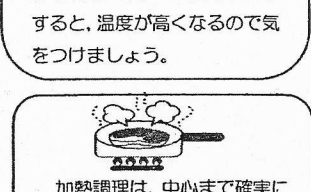 すると，温度が高くなるので気
をつけましょう。
加熱調理は、中心まで確実に